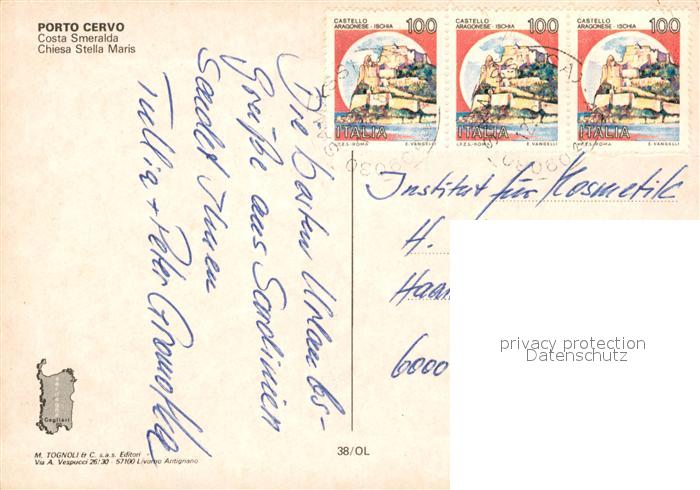 PORTO CERVO
Costa Smeralda
Chiesa Stella Maris
CASTELLO
ARAGONESE - ISCHIA
100
ITALIA
I.P.Z.S. - ROMA E. VANGELLI
CASTELLO
ARAGONESE - ISCHIA
100
ITALIA
I.P.Z.S. - ROMA E. VANGELLI
CASTELLO
ARAGONESE - ISCHIA
100
ITALIA
I.P.Z.S. - ROMA E. VANGELLI
Die besten Urlaubs-
Grüße aus Sardinien
sendet Ihnen
Tullia + Peter
Institut für Kosmetik
H.
6000
privacy protection
Datenschutz
Cagliari
M. TOGNOLI & C. s.a.s. Editori
Via A. Vespucci 26/30 - 57100 Livorno Antignano
38/OL